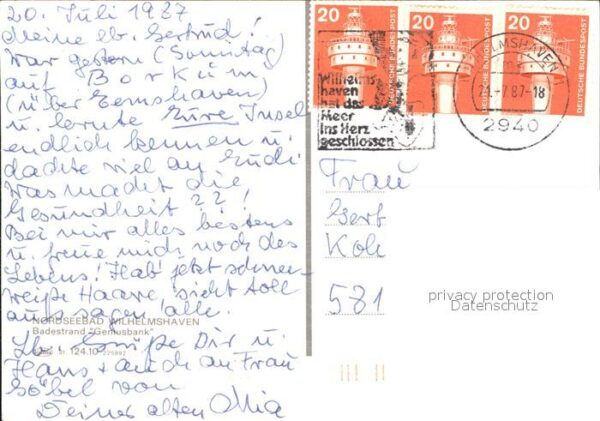 20. Juli 1987
Meine lb. Gertrud!
War gestern (Sonntag)
auf Borkum
(über Eemshaven)
u. lernte Eure Insel
endlich kennen u.
dachte viel an Rudi
Was macht die
Gesundheit??!
Bei mir alles bestens
u. freue mich noch des
Lebens! Hab' jetzt schnee-
weiße Haare, sieht toll
aus, sagen alle.
NORDSEEBAD WILHELMSHAVEN
Badestrand "Geniusbank"
124.10
Grüße Dir u.
Hans + auch an Frau
Göbel von
Deiner alten Mia
20
20
20
DEUTSCHE BUNDESPOST
DEUTSCHE BUNDESPOST
DEUTSCHE BUNDESPOST
Wilhelms-
haven
hat das
Meer
ins Herz
geschlossen
WILHELMSHAVEN 1
21.-7.87-18
2940
Frau
Gert
581
privacy protection
Datenschutz